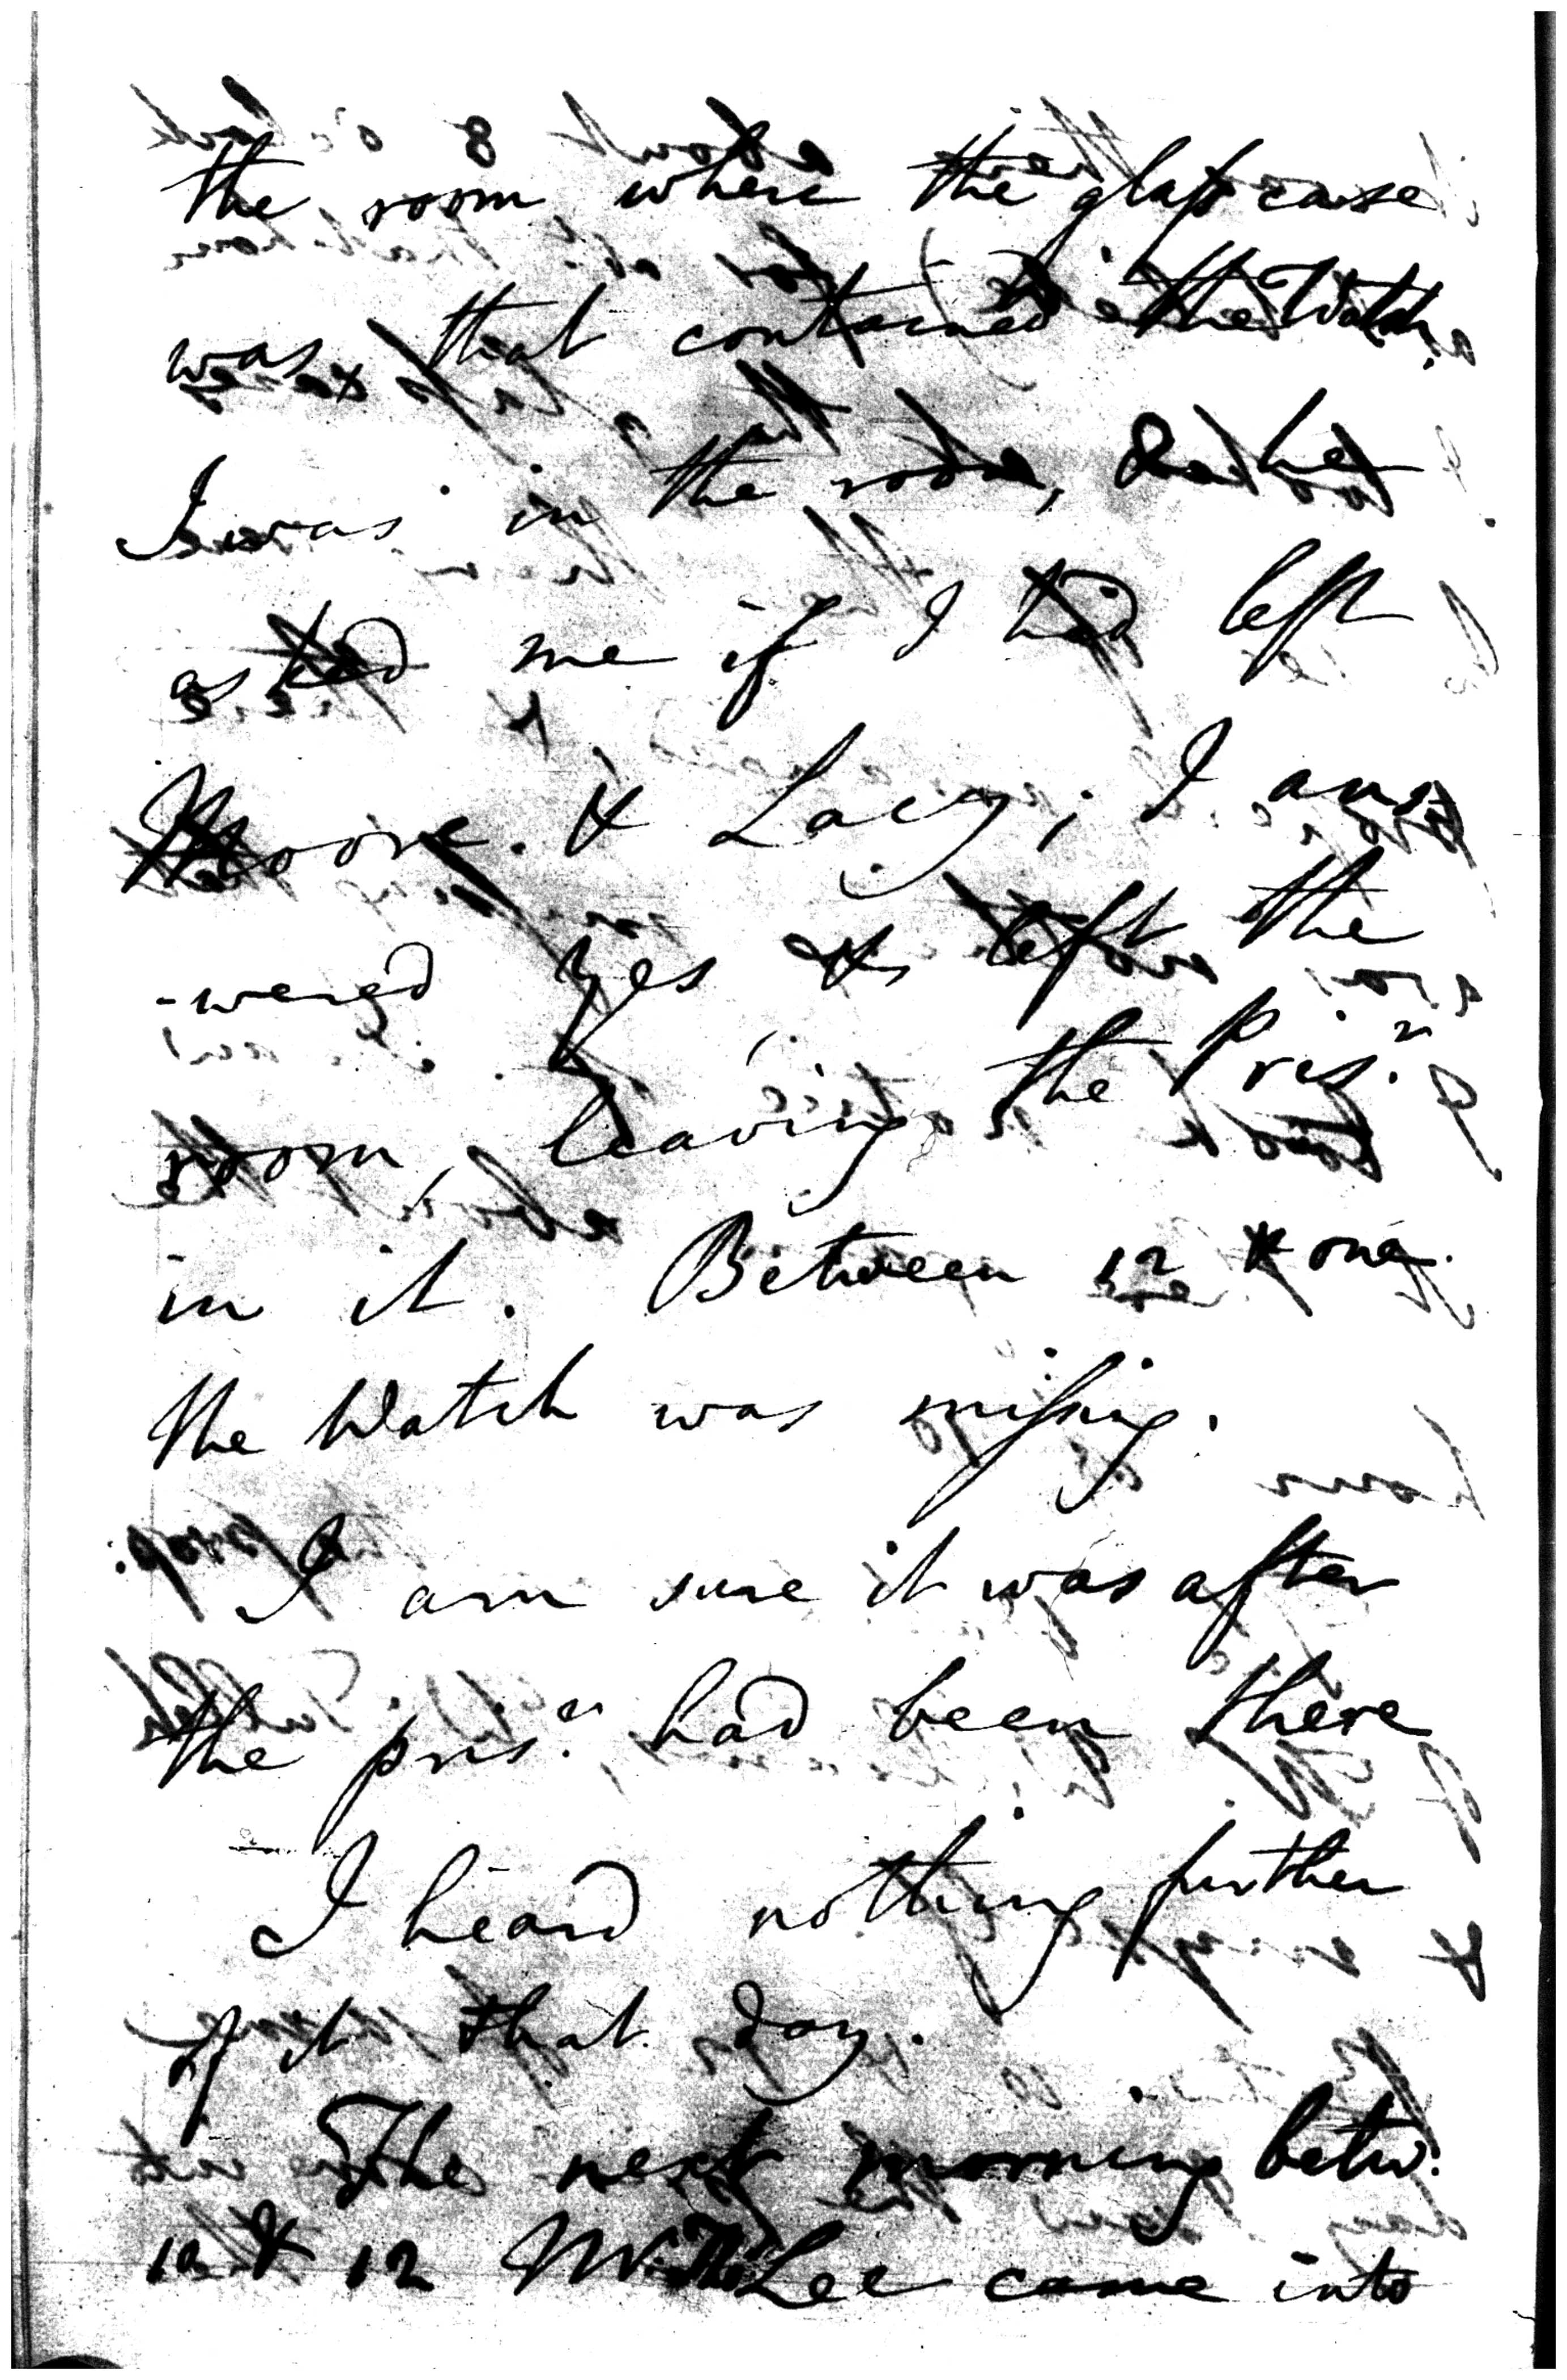 the room where the glass case
was that contained the Watch.
I was in the room, & he
asked me if I had left
Moore & Lacy; I ans
-wered Yes & left the
room, leaving the Pris.r
in it. Between 12 & one
the Watch was missing.
I am sure it was after
the pris.r had been there
I heard nothing further
of it that day.
The next morning betw.
& 12 Mr. Lee came into